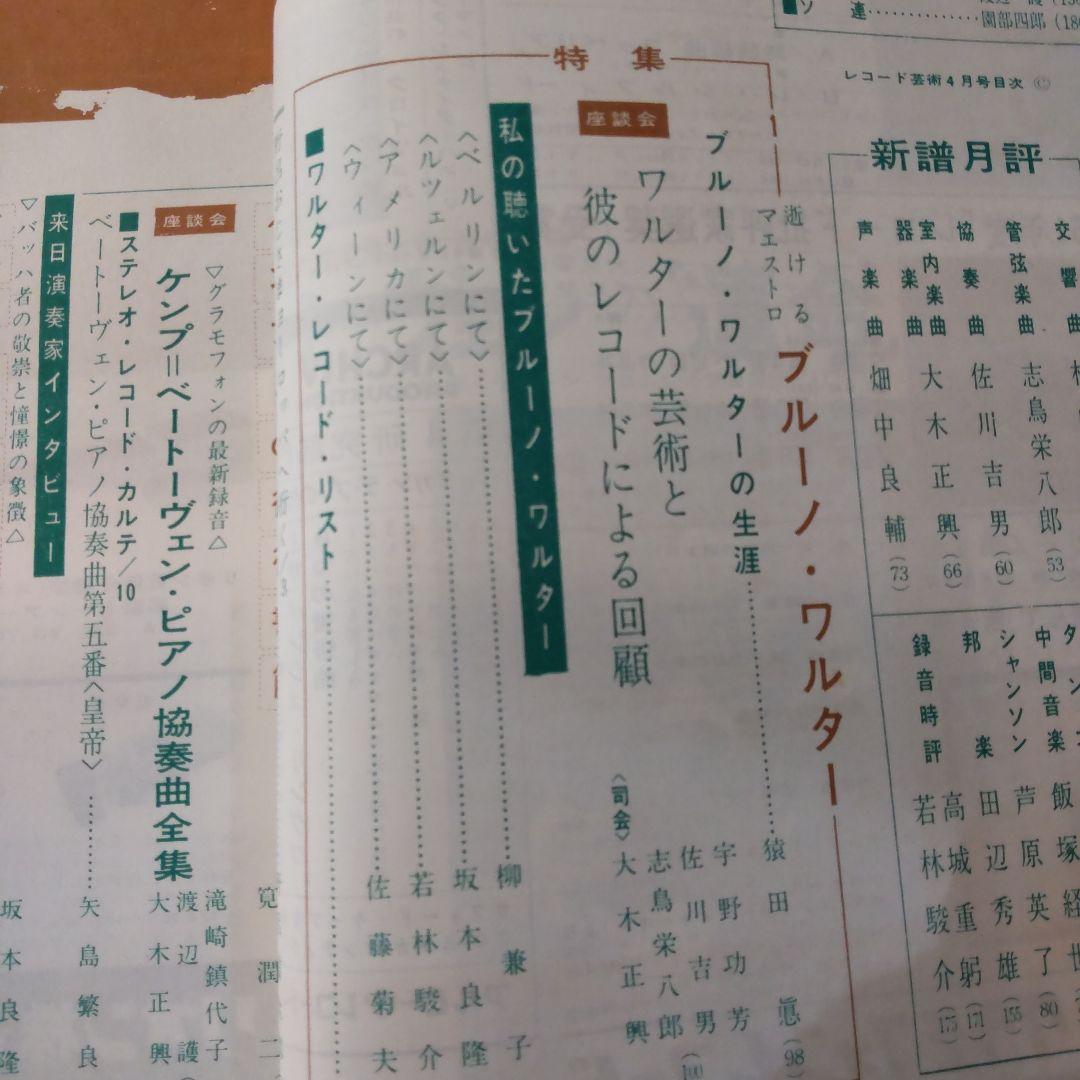 ソ連…………園部四郎
レコード芸術4月号目次 ©
新譜月評
管弦楽曲 志鳥栄八郎 (53)
協奏曲 佐川吉男 (60)
室内楽曲 大木正興 (66)
器楽曲
声楽曲 畑中良輔 (73)
中間音楽 飯塚経世
シャンソン 芦原英了 (80)
田辺秀雄 (155)
邦楽 高城重躬 (171)
録音時評 若林駿介 (175)
特集
逝けるマエストロ ブルーノ・ワルター
ブルーノ・ワルターの生涯…………猿田悳 (98)
座談会
ワルターの芸術と
彼のレコードによる回顧
宇野功芳
佐川吉男
志鳥栄八郎
〈司会〉大木正興
私の聴いたブルーノ・ワルター
〈ベルリンにて〉…………柳兼子
〈ルツェルンにて〉…………坂本良隆
〈アメリカにて〉…………若林駿介
〈ウィーンにて〉…………佐藤菊夫
■ワルター・レコード・リスト…………
筧潤二
▽グラモフォンの最新録音△
座談会
ケンプ=ベートーヴェン・ピアノ協奏曲全集
滝崎鎮代子
渡辺護
大木正興
■ステレオ・レコード・カルテ/10
ベートーヴェン・ピアノ協奏曲第五番〈皇帝〉…………矢島繁良
来日演奏家インタビュー
▽バッハ者の敬崇と憧憬の象徴△
坂本良隆